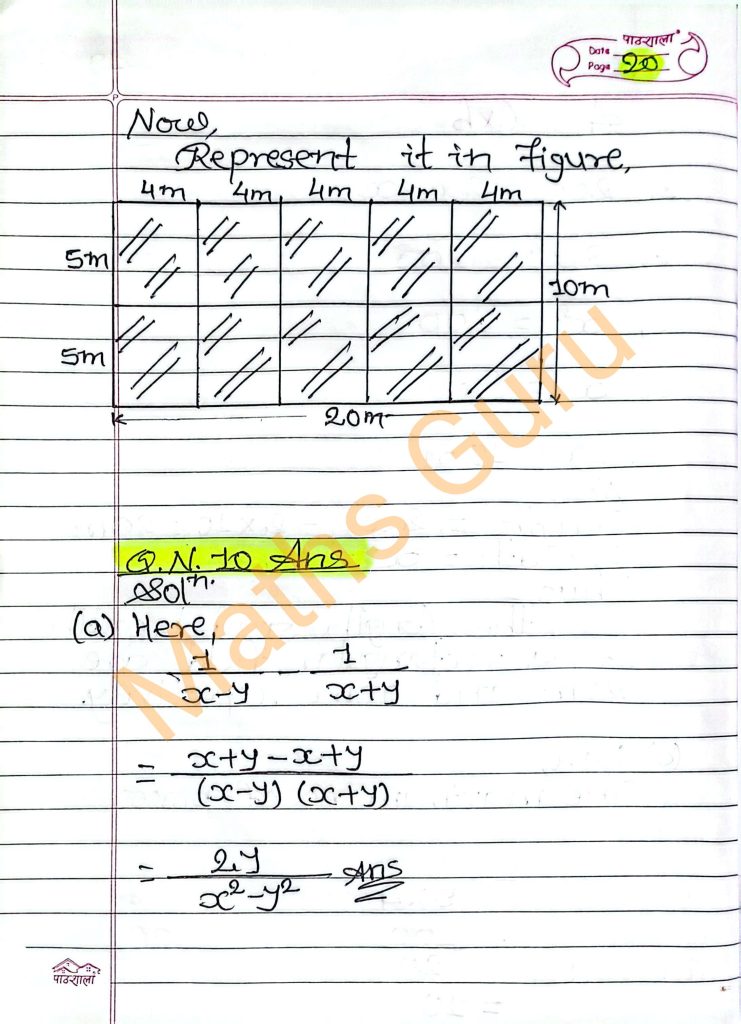 पाठशाला
Date
Page 20
Now,
Represent it in Figure,
4m 4m 4m 4m 4m
5m
10m
5m
20m
Maths Guru
Q.N. 10 Ans
Solⁿ.
(a) Here,
1/(x-y) - 1/(x+y)
= (x+y-x+y)/((x-y) (x+y))
= 2y/(x²-y²) Ans
पाठशाला